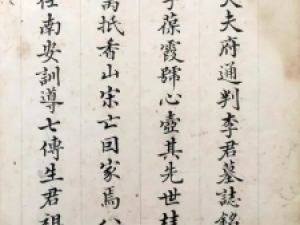 大夫府通判李君墓誌銘
字葆霞號心壺其先世桂
萬抵香山宋亡囘家焉八
任南安訓導七傳生君祖